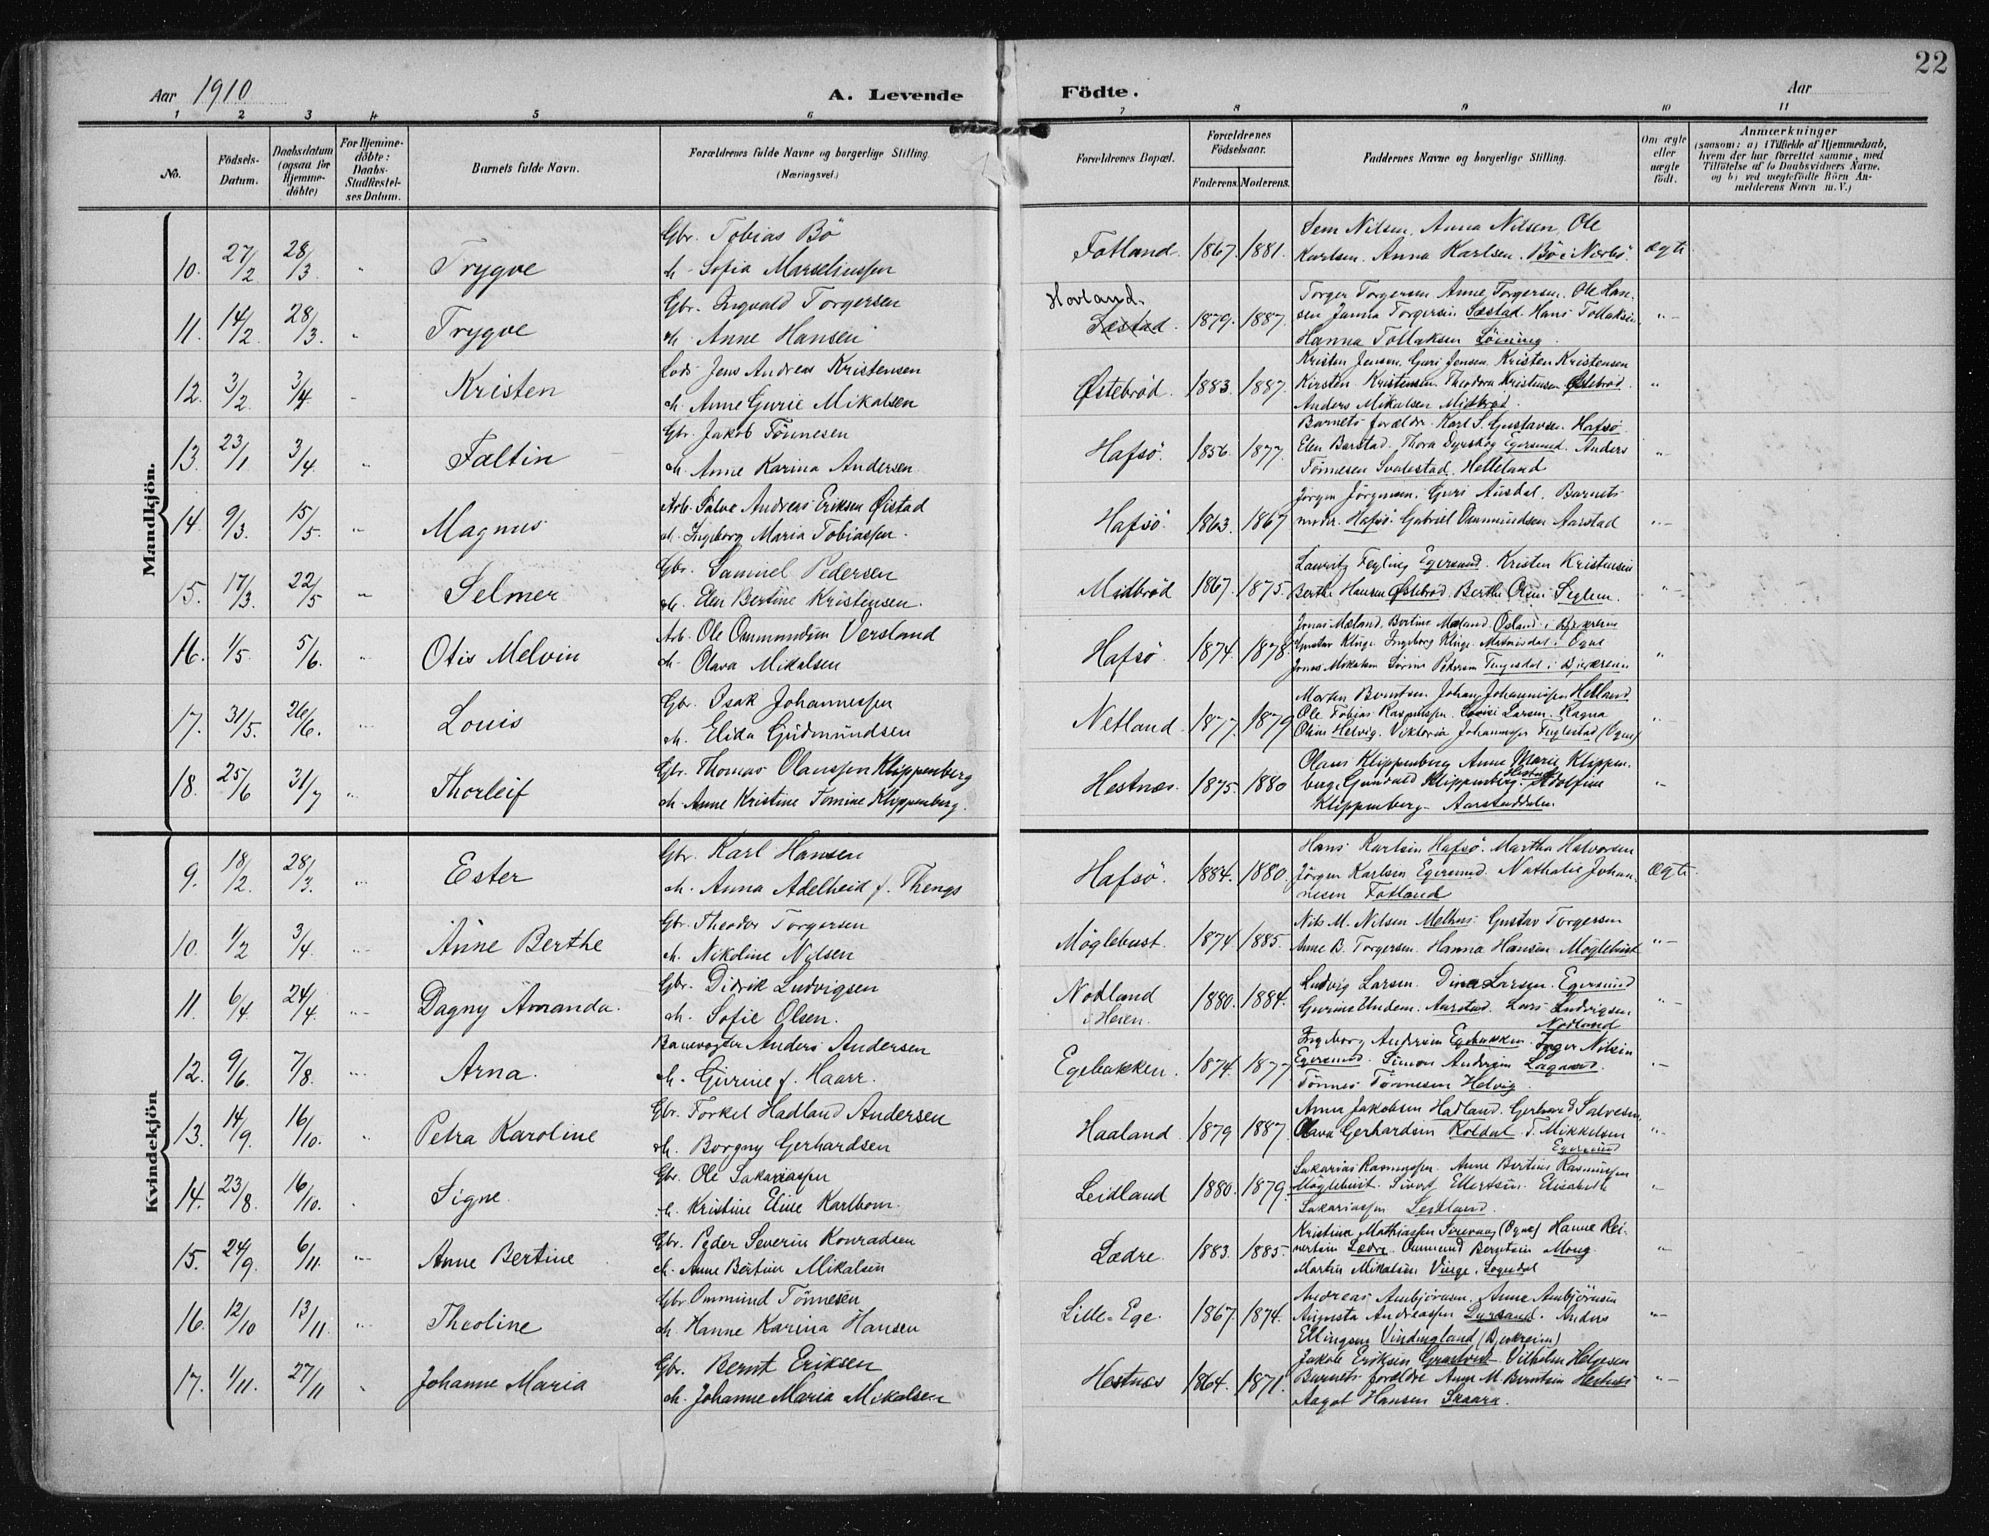 22
Aar 1910
A. Levende Födte.
Aar
1 2 3 4 5 6 7 8 9 10 11
No.
Födsels-Datum.
Daabsdatum (ogsaa for Hjemme-döbte)
For Hjemme-döbte: Daabs-Stadfæstel-ses Datum.
Barnets fulde Navn.
Forældrenes fulde Navne og borgerlige Stilling.
(Næringsvei.)
Forældrenes Bopæl.
Forældrenes Födselsaar.
Faderens. Moderens.
Faddernes Navne og borgerlige Stilling.
Om ægte eller uægte födt.
Anmærkninger
(saasom: a) i Tilfælde af Hjemmedaab, hvem der har forrettet samme, med Tilföielse af to Daabsvidners Navne, og b) ved uægtefödte Börn An-melderens Navn m. V.)
Mandkjön.
10. 27/2 28/3 " Trygve
Gbr. Tobias Bö
M. Sofia Marseliussen
Fotland. 1867. 1881.
Sem Nilsen. Anna Nilsen, Ole
Karlsen. Anna Karlsen. Bö i Nærbö. ægte
11. 14/2 28/3. " Trygve
Gbr. Ingvald Torgersen
M. Anne Hansen
Hovland.
Sæstad. 1879. 1887.
Torger Torgersen Anne Torgersen. Ole Han-
sen Janna Torgersen Sæstad. Hans Tollaksen "-
Hanna Tollaksen Löining.
12. 3/2 3/4 " Kristen
Jens Andreas Kristensen
M. Anne Gurie Mikalsen
Østebröd. 1883. 1887.
Kristen Jensen. Guri Jensen. Kristen Kristensen
Kirsten Kristensen. Theodora Kristensen Østebröd. "
Anders Mikalsen Midbröd.
13. 23/1 3/4 " Faltin
Gbr. Jakob Tönnesen
M. Anne Karina Andersen
Hafsö. 1856. 1877.
Barnets forældre. Karl S. Gustavsen. Hafsö.
Elen Barstad. Thora Dyrskog Egersund. Anders "
Tönnesen Svalestad. Helleland
14. 9/3. 15/5. " Magnus
Arb. Salve Andreas Eriksen Øistad
M. Ingeborg Maria Tobiassen.
Hafsö. 1863. 1867
Jörgen Jörgensen. Guri Ausdal. Barnets
moder. Hafsö. Gabriel Ommundsen Aarstad "-
15. 17/3. 22/5 " Selmer
Gbr. Samuel Pedersen
M. Elen Bertine Kristensen.
Midbröd 1867. 1875.
Lauritz Feyling Egersund. Kristen Kristensen
Berthe Hansen Østebröd. Berthe Olsen Seglem. "-
16. 1/5. 5/6. " Otis Melvin
Arb. Ole Ommundsen Versland
M. Olava Mikalsen
Hafsö 1874. 1878.
Jonas Mæland. Bertine Mæland. Øsland i Bjerkreim
Gustav Klinge. Ingeborg Klinge. i Ogne "
Jonas Mikalsen i Bjerkreim
17. 31/5. 26/6. " Louis
Gbr. Isak Johannessen
M. Elida Gudmundsen
Netland. 1877. 1879
Morten Berntsen. Johan Johannessen Hetland
Ole Tobias Rasmussen. Lovise Larsen. Ragna "-
Olsen Helvig. Viktoria Johannessen Fuglestad (Ogne)
18. 25/6 31/7 " Thorleif
Gbr. Thomas Olanssen Klippenberg
M. Anne Kristine Tomine Klippenberg.
Hestnæs. 1875. 1880
Olaus Klippenberg Anne Marie Klippen-
berg. Gunvald Klippenberg. Hestnæs Adolfine "
Klippenberg. Aarstaddalen
Kvindekjön
9. 18/2. 28/3. " Ester
Gbr. Karl Hansen
M. Anna Adelheid f. Thengs
Hafsö. 1884. 1880.
Hans Karlsen Hafsö. Martha Halvorsen
Jörgen Karlsen Egersund. Nathalie Johan- Ægte
nesen Fotland
10. 1/2 3/4. " Anne Berthe
Gbr. Theodor Torgersen
M. Nikoline Nilsen
Möglebust. 1874 1885.
Nils M. Nilsen Melhus. Gustav Torgersen
Anne B. Torgersen. Hanna Hansen Möglebust "-
11. 6/4 24/4. " Dagny Amanda.
Gbr. Didrik Ludvigsen
M. Sofie Olsen.
Nodland
i Heien. 1880. 1884.
Ludvig Larsen. Dina Larsen. Egersund
Gurine Undem. Aarstad. Lars Ludvigsen "-
Nodland
12. 9/6. 7/8. " Arna.
Banevogter Anders Andersen
M. Gurine f. Haarr.
Egebakken. 1874. 1877
Ingeborg Andersen Egebakken. Inger Nilsen
Egersund. Simon Andersen Lagaard. "-
Tönnes Tönnesen Helvig.
13. 14/9. 16/10. " Petra Karoline
Gbr. Torkel Hadland Andersen
M. Borgny Gerhardsen
Haaland 1879 1887
Anna Jakobsen Hadland. Gerhard Salvesen
Olava Gerhardsen Koldal. T. Mikkelsen "-
Egersund
14. 23/8. 16/10. " Signe.
Gbr. Ole Sakariassen
M. Kristine Eline Karlbom.
Leidland 1880. 1879.
Sakarias Rasmussen. Anne Bertine Rasmussen
Möglebust. Sivert Ellertsen. Elisabeth "
Sakariassen Leidland.
15. 24/9. 6/11. " Anne Bertine
Gbr. Peder Severin Konradsen
M. Anne Bertine Mikalsen
Lædre. 1883. 1885.
Kristina Mathiassen Sirevaag (Ogne) Hanne Rei-
nertsen Lædre. Ommund Berntsen Mong. "
Martin Mikalsen Vinge. Sogndal
16. 12/10 13/11. " Theoline
Gbr. Ommund Tönnesen
M. Hanne Karina Hansen
Lille-Ege. 1867. 1874.
Andreas Ambjörnsen. Anne Ambjörnsen
Augusta Andreassen Dyrsand. Anders "-
Ellingsen Vindingland (Bjerkreim)
17. 1/11. 27/11 " Johanne Maria
Gbr. Bernt Eriksen
M. Johanne Maria Mikalsen
Hestnæs 1864. 1871.
Jakob Eriksen. Vilhelm Helgesen
Barnets forældre Anne M. Berntsen Hestnæs "-
Aagot Hansen Skaara.